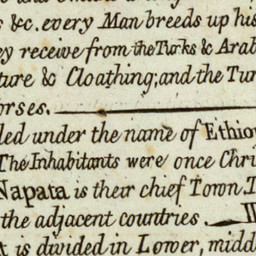 s &c. every Man breeds up his
ey receive from the Turks & Arab
ture & Cloathing; and the Tur
orses.
led under the name of Ethiop
The Inhabitants were once Chri
Napata is their chief Town. I
the adjacent countries.
is divided in Lower, midd